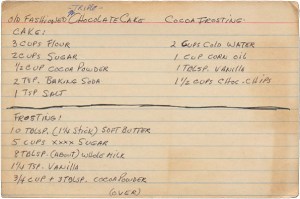 TRIPP-
Old Fashioned Chocolate Cake Cocoa Frosting
Cake:
3 cups Flour 2 cups Cold Water
2 cups Sugar 1 cup Corn Oil
1/2 cup Cocoa Powder 1 Tblsp. Vanilla
2 Tsp. Baking Soda 1 1/2 cups Choc-Chips
1 Tsp Salt
Frosting:
10 Tblsp. (1 1/4 Stick) Soft Butter
5 cups xxxx Sugar
8 Tblsp. (About) Whole Milk
1 1/4 Tsp. Vanilla
3/4 cup + 3 Tblsp. Cocoa Powder
(over)